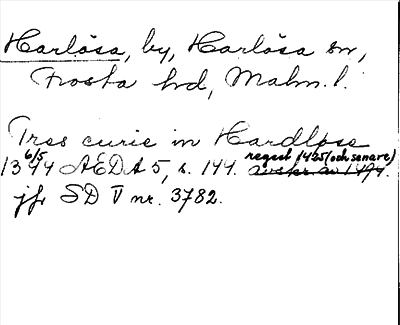 Harlösa, by, Harlösa sn,
Frosta hd, Malm. l.
Tres curie in Hardløse
13 6/5 44 ÆDA 5, s. 144. regest 1425 (och senare). avskr. av 1494.
jfr SD V nr. 3782.